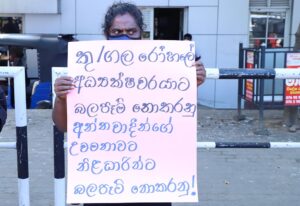 කු/ගල රෝහලේ
අධ්‍යක්ෂවරයාට
බලපෑම් නොකරනු
අන්තවාදීන්ගේ
උවමනාවට
නිළධාරීන්ට
බලපෑම් නොකරනු!